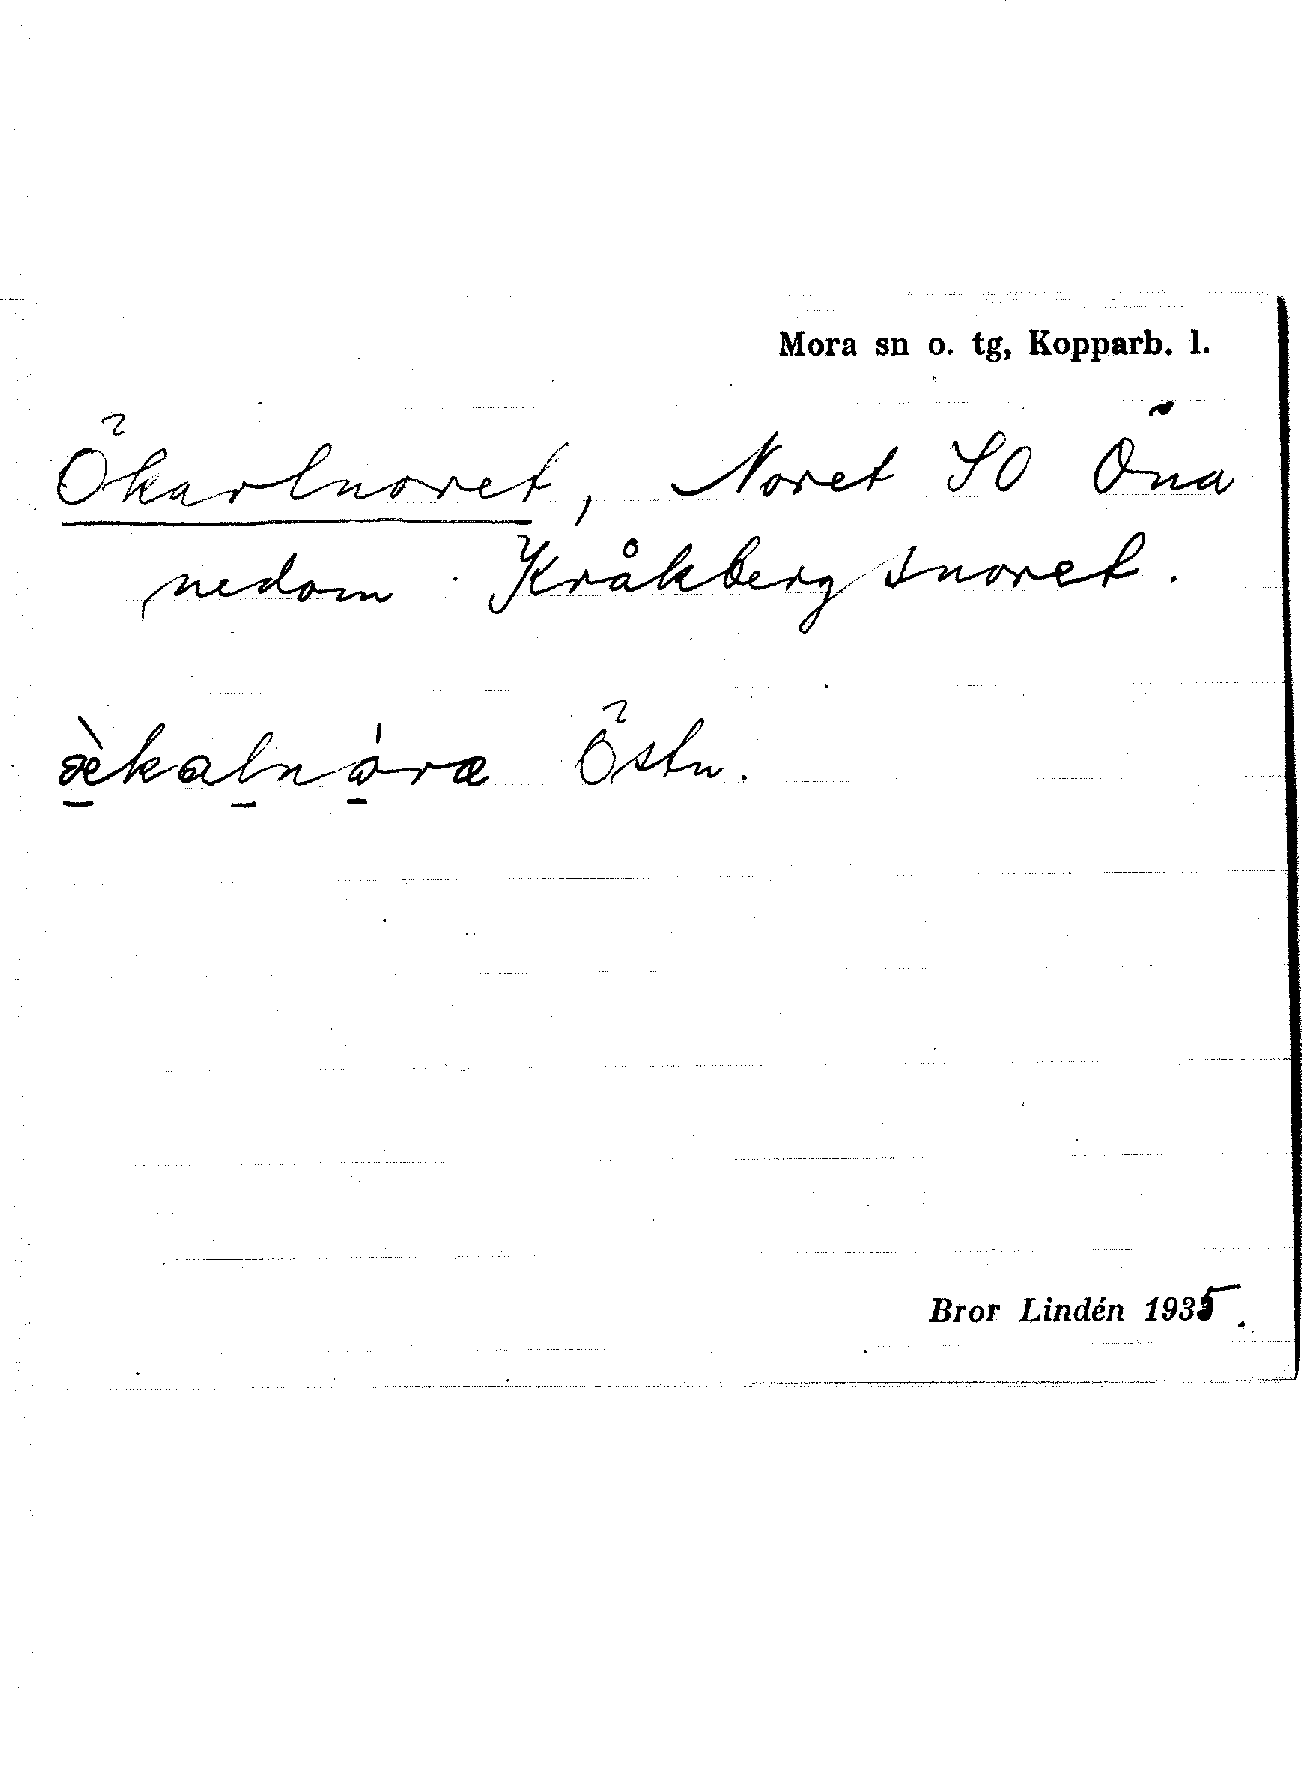 Mora sn o. tg, Kopparb. l.
Ökarlnoret, Noret SO Öna
nedom Kråkbergsnoret.
œ̀kalnóra Östn.
Bror Lindén 1935.